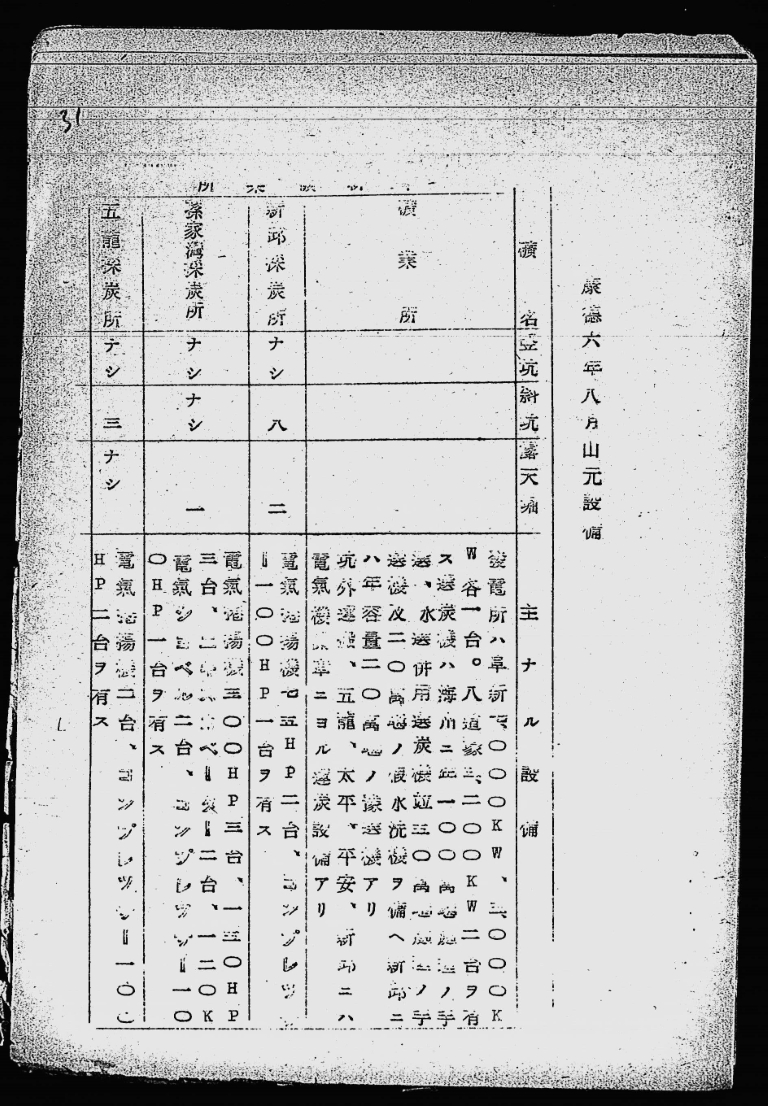 31
康德六年八月山元設備
礦名 竪坑 斜坑 露天掘 主ナル設備
礦業所
發電所ハ阜新 〇〇〇KW、 〇〇〇K
W各一台。八道家 二〇〇〇KW二台ヲ有
ス選炭機ハ海州ニ 一〇〇萬 ノ手
選、水選併用選炭機 三〇萬 ノ手
選機及二〇萬 ノ假水洗機ヲ備ヘ新邱ニ
ハ年容量二〇萬 ノ 選機アリ
坑外運搬、五龍、太平、平安、新邱ニハ
電氣機 車ニヨル運炭設備アリ
新邱採炭所 ナシ 八 二
電氣捲揚機七五HP二台、コンプレッサ
ー一〇〇HP一台ヲ有ス
孫家灣採炭所 ナシ ナシ 一
電氣捲揚機三〇〇HP三台、一五〇HP
三台、 二台、一二〇K
電氣ショベル二台、コンプレッサー一〇
〇HP一台ヲ有ス
五龍採炭所 ナシ 三 ナシ
電氣捲揚機二台、コンプレッサー一〇〇
HP二台ヲ有ス